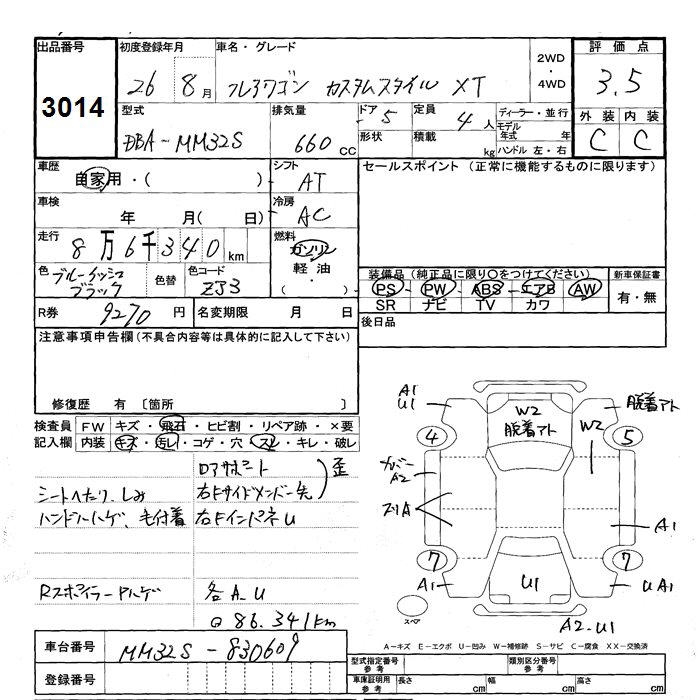 出品番号 3014
初度登録年月 26 8月
車名・グレード フレアワゴン カスタムスタイル XT
2WD・4WD
評価点 3.5
外装 C 内装 C
型式 DBA-MM32S
排気量 660 CC
ドア 5
形状
定員 4人
積載 kg
ディーラー・並行
モデル年式 年
ハンドル 左・右
車歴 自家用・( )
シフト AT
セールスポイント (正常に機能するものに限ります)
車検 年 月( 日)
冷房 AC
走行 8万6千340km
燃料 ガソリン 軽油・( )
色 ブルーイッシュブラック
色替
色コード ZJ3
装備品(純正品に限り○をつけてください)
PS・PW・ABS・エアB・AW
SR ナビ TV カワ
新車保証書 有・無
R券 9270円
名変期限 月 日
後日品
注意事項申告欄(不具合内容等は具体的に記入して下さい)
修復歴 有 〔箇所 〕
検査員記入欄
FW キズ・飛石・ヒビ割・リペア跡・×要
内装 キズ・汚レ・コゲ・穴・スレ・キレ・破レ
コアサポート
右Fサイドメンバー先
歪
シートヘタリ、しみ
ハンドルハゲ、毛付着
右FインパネU
Rスポイラークハゲ
各A.U
86.341km
車台番号 MM32S-830609
登録番号
A1
U1
W2
脱着アト
脱着アト
W2
4
5
カバー
A2
A1
7
7
A1
U1
UA1
スペア
A2.U1
A-キズ E-エクボ U-凹み W-補修跡 S-サビ C-腐食 XX-交換済
型式指定番号 参考
類別区分番号 参考
車庫証明用 参考
長さ cm 幅 cm 高さ cm